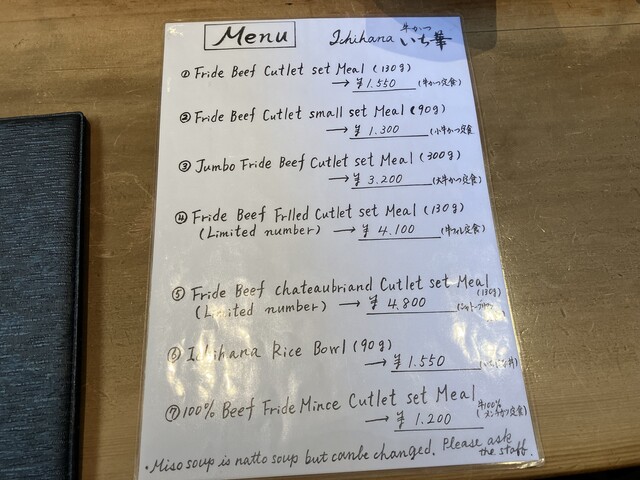 Menu Ichihana 牛かつ いち華
① Fride Beef Cutlet set Meal (130g)
→ ¥1.550 (牛かつ定食)
② Fride Beef Cutlet small set Meal (90g)
→ ¥ 1.300 (小牛かつ定食
③ Jumbo Fride Beef Cutlet set Meal (300g)
→ ¥ 3.200 (大牛かつ定食)
④ Fride Beef Frlled Cutlet set Meal (130g)
(Limited number) → ¥ 4.100 (牛フィレ定食)
⑤ Fride Beef chateaubriand Cutlet set Meal
(130g)
(Limited number) → ¥ 4.800
⑥ Ichihana Rice Bowl (90g)
→ ¥ 1.550
⑦ 100% Beef Fride Mince Cutlet set Meal 牛100%
→ ¥ 1.200 メンチかつ定食)
・Miso soup is natto soup but canbe changed. Please ask
the staff.